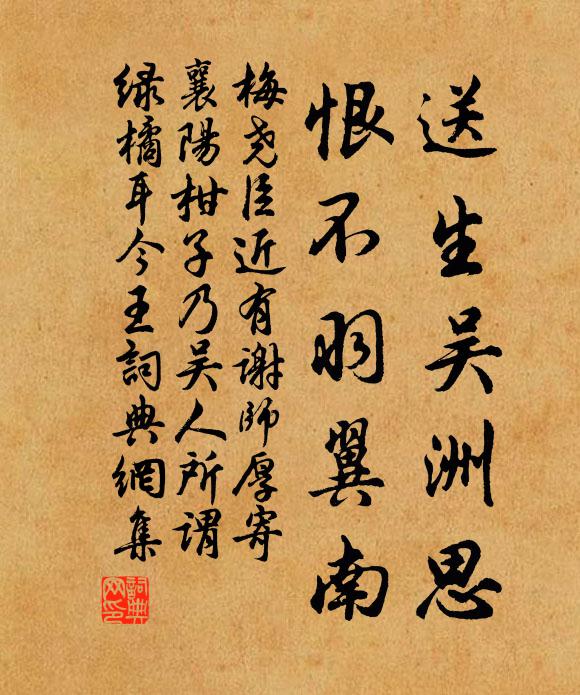 送生吴洲思
恨不羽翼南
梅尧臣近有谢師厚寄
襄陽柑子乃吴人所谓
绿橘耳今王詞典網集
詞典網印